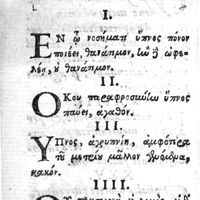 I.
ΕΝ ᾧ νοσήματι ὕπνος πόνον
ποιέει, θανάσιμον. ἢν ὃ ὠφε-
λέῃ, ὐ θανάσιμον.
II.
ΟΚου παραφροσύνην ὕπνος
παύει, ἀγαθόν.
III.
ΥΠνος, ἀγρυπνίη, ἀμφότερα
τῦ μετρίυ μᾶλλον γινόμενα,
κακόν.
IIII.